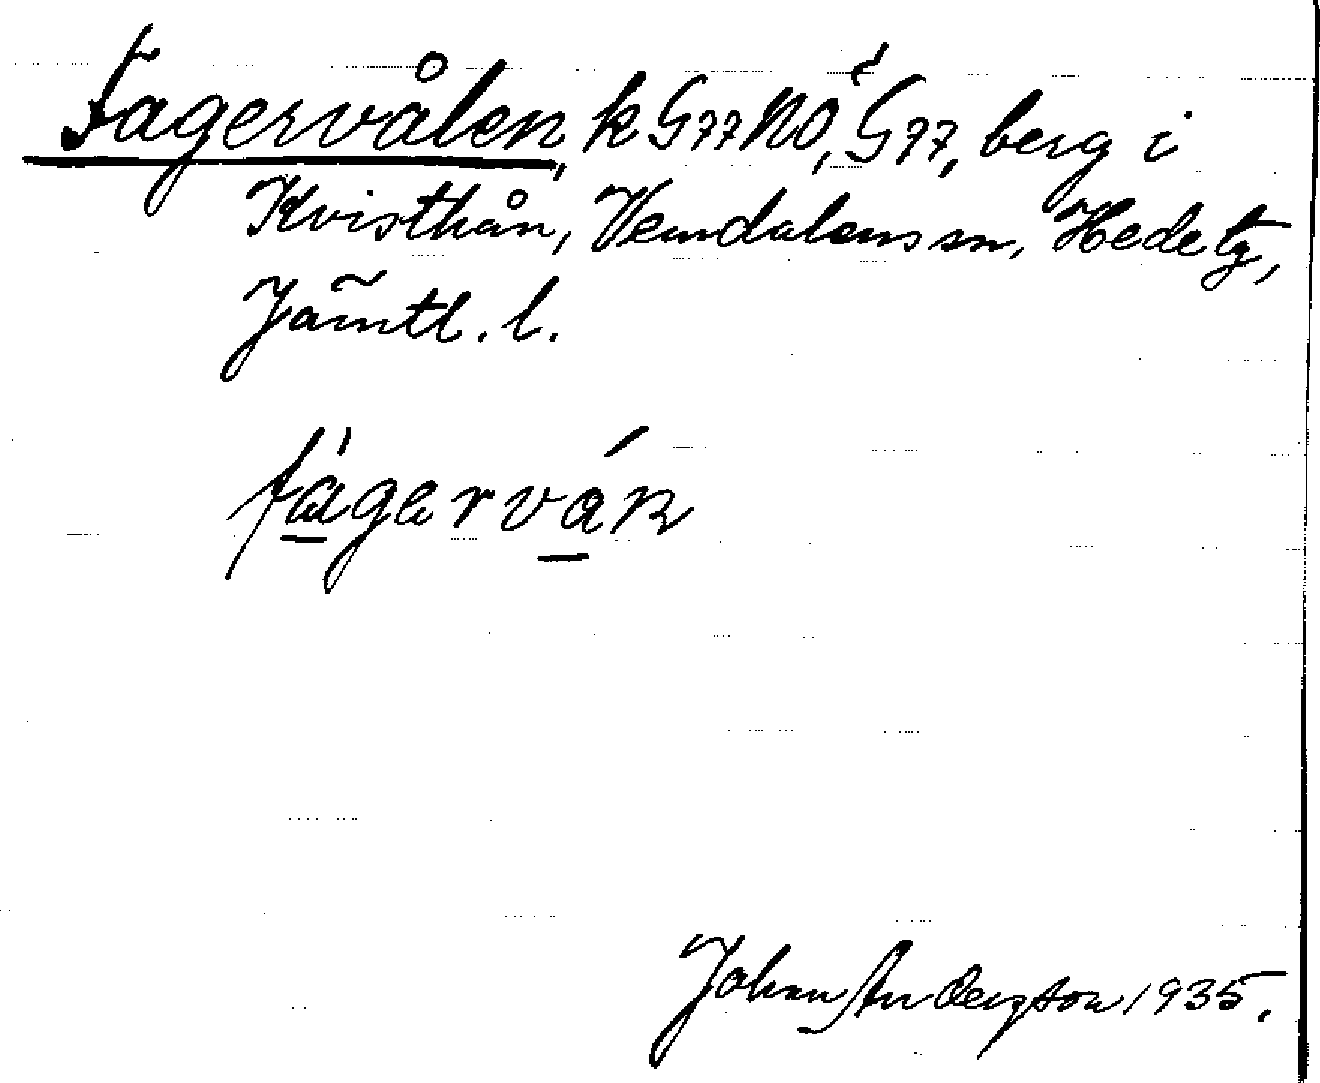 Fagervålen, k G77NO, G77, berg i
Kvisthån, Vemdalens sn, Hede tg,
Jämtl. l.
fàgervák
Johan Anderson 1935.